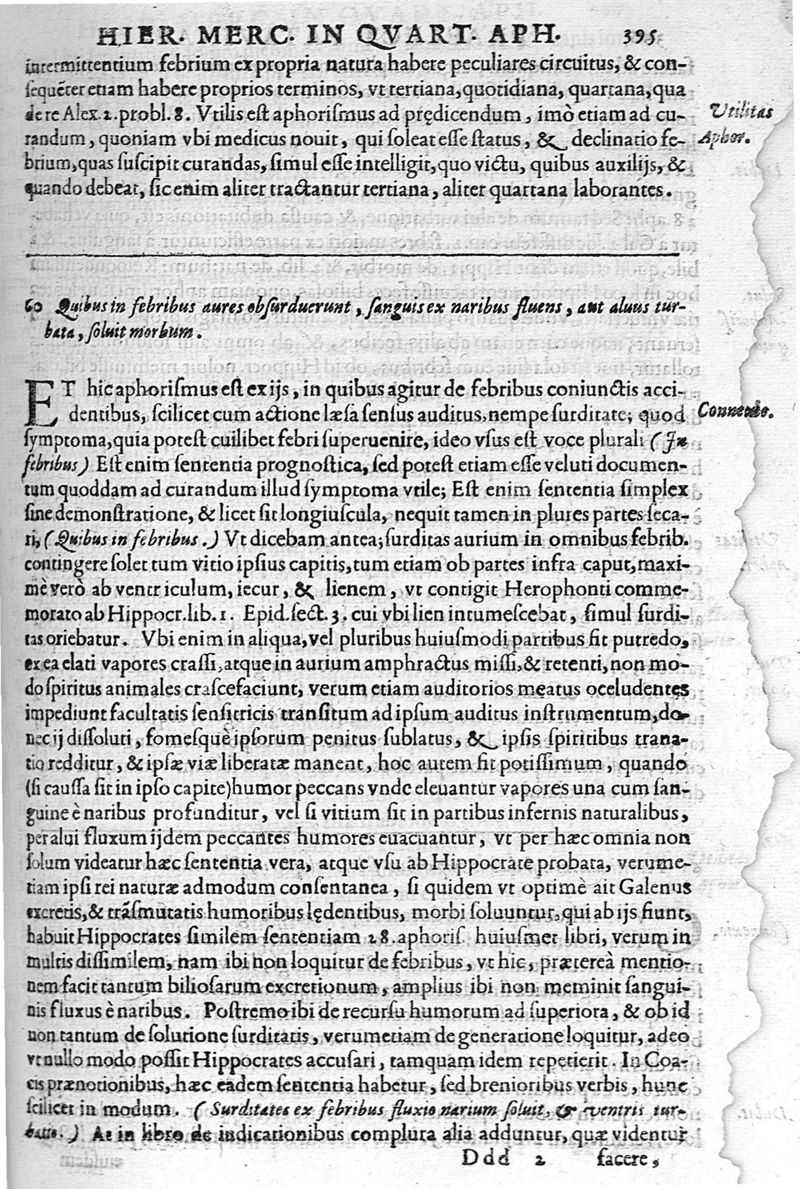 HIER. MERC. IN QVART. APH. 395
intermittentium febrium ex propria natura habere peculiares circuitus, & con-
sequēter etiam habere proprios terminos, vt tertiana, quotidiana, quartana, qua
de re Alex. 2. probl. 8. Vtilis est aphorismus ad prędicendum, imò etiam ad cu-
Vtilitas
randum, quoniam vbi medicus nouit, qui soleat esse status, & declinatio fe-
Aphor.
brium, quas suscipit curandas, simul esse intelligit, quo victu, quibus auxilijs, &
quando debeat, sic enim aliter tractantur tertiana, aliter quartana laborantes.
60 Quibus in febribus aures obsurduerunt, sanguis ex naribus fluens, aut aluus tur-
bata, soluit morbum.
ET hic aphorismus est ex ijs, in quibus agitur de febribus coniunctis acci-
dentibus, scilicet cum actione læsa sensus auditus, nempe surditate; quod
Connexio.
symptoma, quia potest cuilibet febri superuenire, ideo vsus est voce plurali (In
febribus) Est enim sententia prognostica, sed potest etiam esse veluti documen-
tum quoddam ad curandum illud symptoma vtile; Est enim sententia simplex
sine demonstratione, & licet sit longiuscula, nequit tamen in plures partes seca-
ri, (Quibus in febribus.) Vt dicebam antea; surditas aurium in omnibus febrib.
contingere solet tum vitio ipsius capitis, tum etiam ob partes infra caput, maxi-
mè verò ab ventriculum, iecur, & lienem, vt contigit Herophonti comme-
morato ab Hippocr. lib. 1. Epid. sect. 3. cui vbi lien intumescebat, simul surdi-
tas oriebatur. Vbi enim in aliqua, vel pluribus huiusmodi partibus sit putredo,
ex ea elati vapores crassi, atque in aurium amphractus missi, & retenti, non mo-
do spiritus animales crascefaciunt, verum etiam auditorios meatus occludentes
impediunt facultatis sensitricis transitum ad ipsum auditus instrumentum, do-
nec ij dissoluti, fomesquè ipsorum penitus sublatus, & ipsis spiritibus trana-
tio redditur, & ipsæ viæ liberatæ manent, hoc autem fit potissimum, quando
(si caussa sit in ipso capite) humor peccans vnde eleuantur vapores una cum san-
guine è naribus profunditur, vel si vitium sit in partibus infernis naturalibus,
per alui fluxum ijdem peccantes humores euacuantur, vt per hæc omnia non
solum videatur hæc sententia vera, atque vsu ab Hippocrate probata, verume-
tiam ipsi rei naturæ admodum consentanea, si quidem vt optimè ait Galenus
excretis, & trāsmutatis humoribus lędentibus, morbi soluuntur, qui ab ijs fiunt,
habuit Hippocrates similem sententiam 28. aphoris. huiusmet libri, verum in
multis dissimilem, nam ibi non loquitur de febribus, vt hic, prætereà mentio-
nem facit tantum biliosarum excretionum, amplius ibi non meminit sangui-
nis fluxus è naribus. Postremo ibi de recursu humorum ad superiora, & ob id
non tantum de solutione surditatis, verumetiam de generatione loquitur, adeo
vt nullo modo possit Hippocrates accusari, tamquam idem repetierit. In Coa-
cis prænotionibus, hæc eadem sententia habetur, sed breuioribus verbis, hunc
scilicet in modum. (Surditates ex febribus fluxio narium soluit, & ventris tur-
batio.) At in libro de indicationibus complura alia adduntur, quæ videntur
Ddd 2 facere,